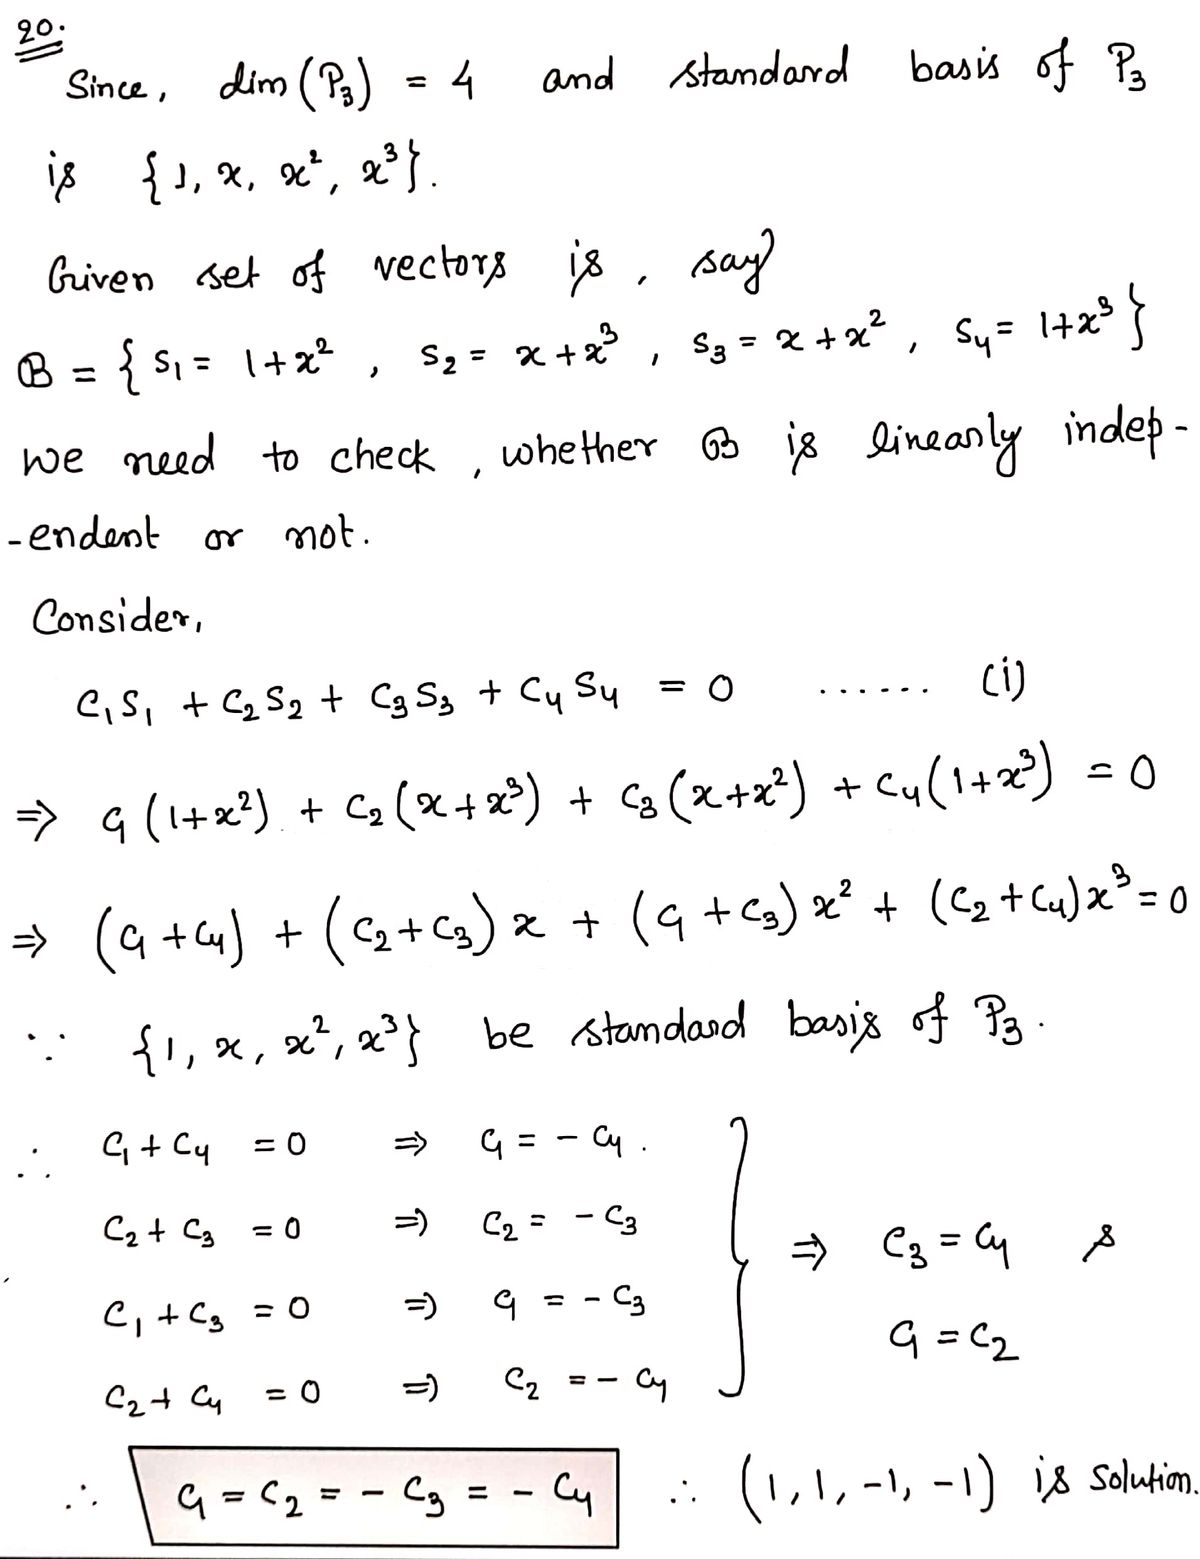 20.
Since, dim(P₃) = 4 and standard basis of P₃
is {1, x, x², x³}.
Given set of vectors is, say
B = {S₁ = 1+x², S₂ = x+x³, S₃ = x+x², S₄ = 1+x³}
we need to check, whether B is linearly indep-
-endent or not.
Consider,
C₁S₁ + C₂S₂ + C₃S₃ + C₄S₄ = 0 ...... (i)
⇒ C₁(1+x²) + C₂(x+x³) + C₃(x+x²) + C₄(1+x³) = 0
⇒ (C₁+C₄) + (C₂+C₃)x + (C₁+C₃)x² + (C₂+C₄)x³ = 0
∵ {1, x, x², x³} be standard basis of P₃.
∴ C₁+C₄ = 0 ⇒ C₁ = -C₄.
C₂+C₃ = 0 ⇒ C₂ = -C₃
⇒ C₃ = C₄ &
C₁+C₃ = 0 ⇒ C₁ = -C₃
C₁ = C₂
C₂+C₄ = 0 ⇒ C₂ = -C₄
∴ C₁ = C₂ = -C₃ = -C₄ ∴ (1, 1, -1, -1) is solution.